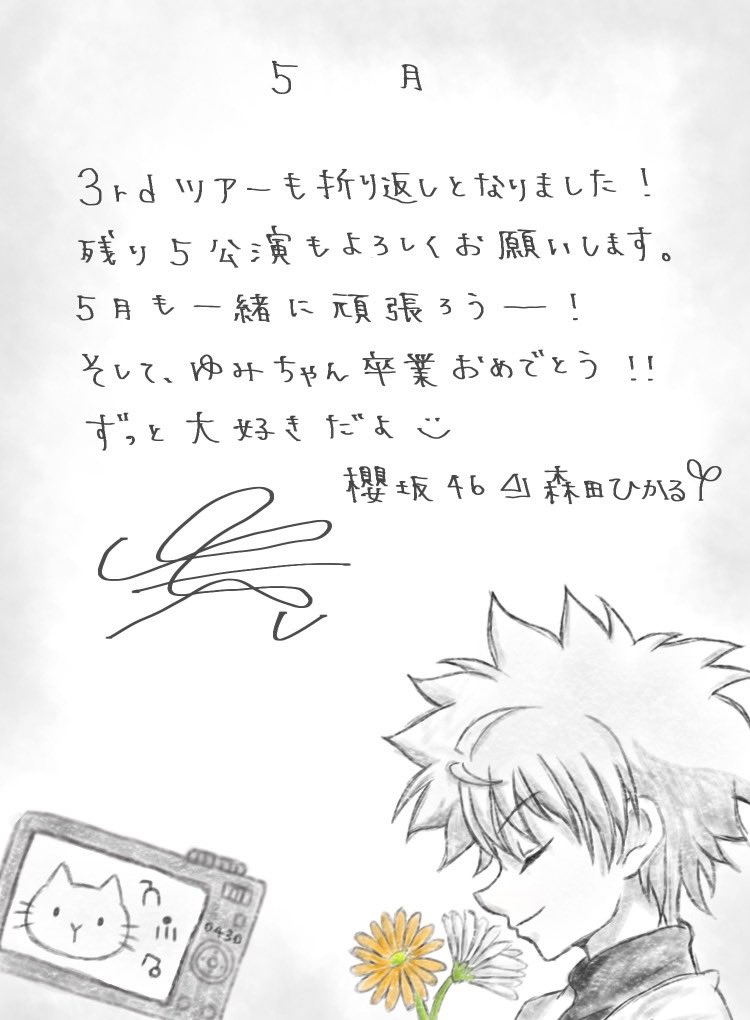 5 月
3rdツアーも折り返しとなりました！
残り5公演もよろしくお願いします。
5月も一緒に頑張ろうー！
そして、ゆみちゃん卒業おめでとう!!
ずっと大好きだよ
櫻坂46 森田ひかる
0430